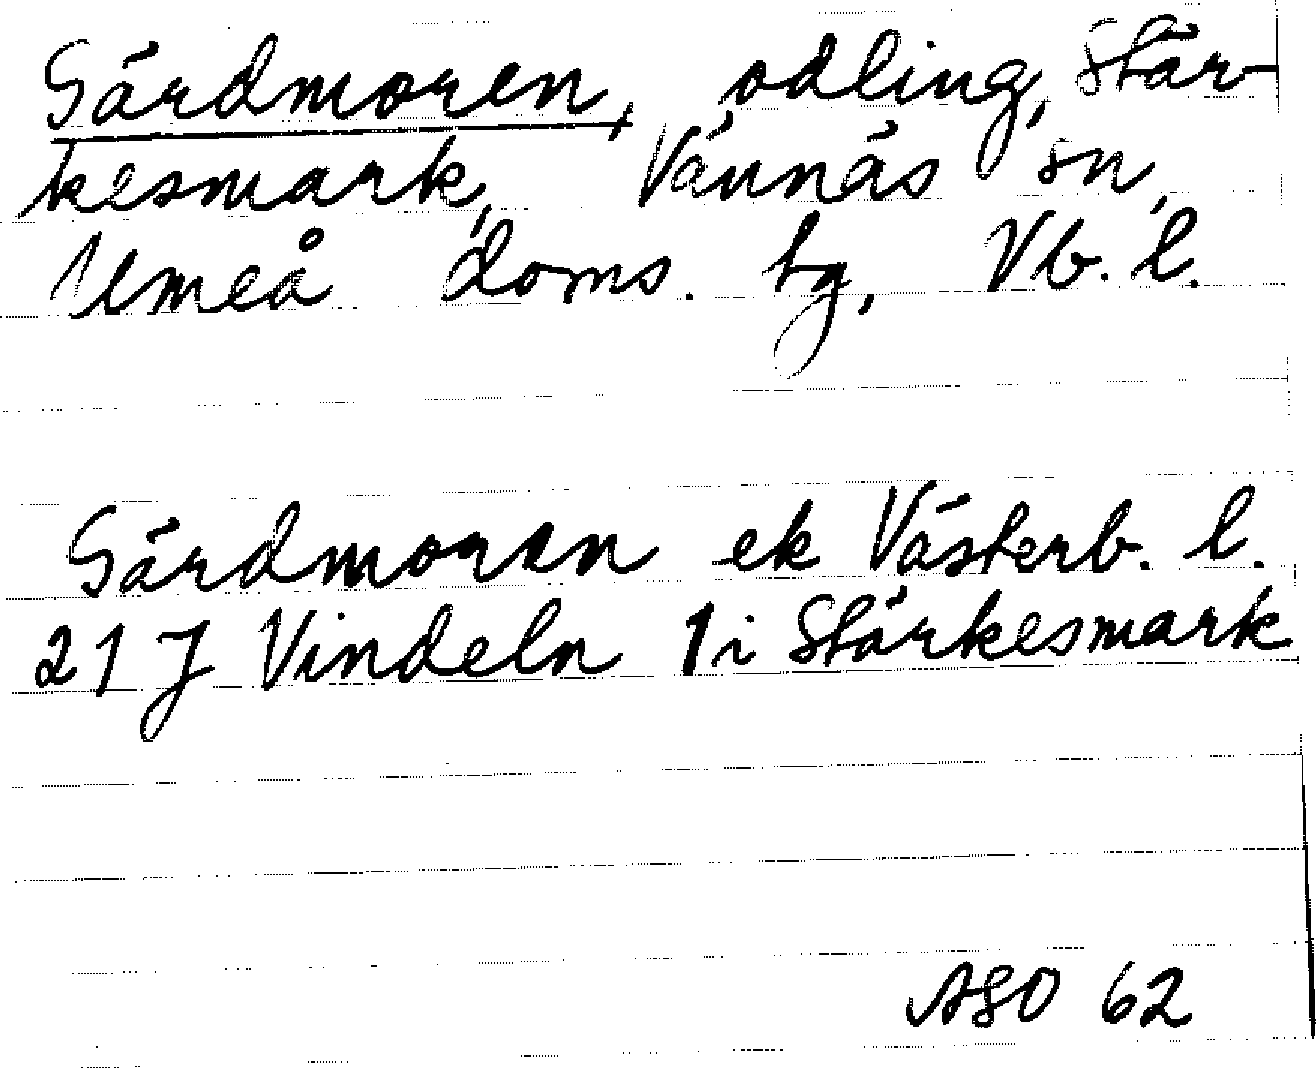 Gärdmoren, odling, Stär-
kesmark, Vännäs sn,
Umeå doms. tg, Vb. l.
Gärdmoren ek Västerb. l.
21 J Vindeln 1 i Stärkesmark
ASO 62